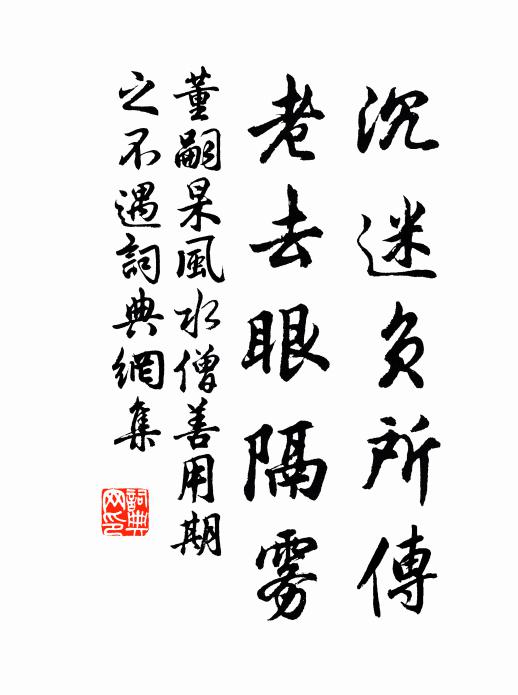 沉迷負所傳
老去眼隔雾
董嗣杲風水僧善用期
之不遇詞典網集
詞典
网印